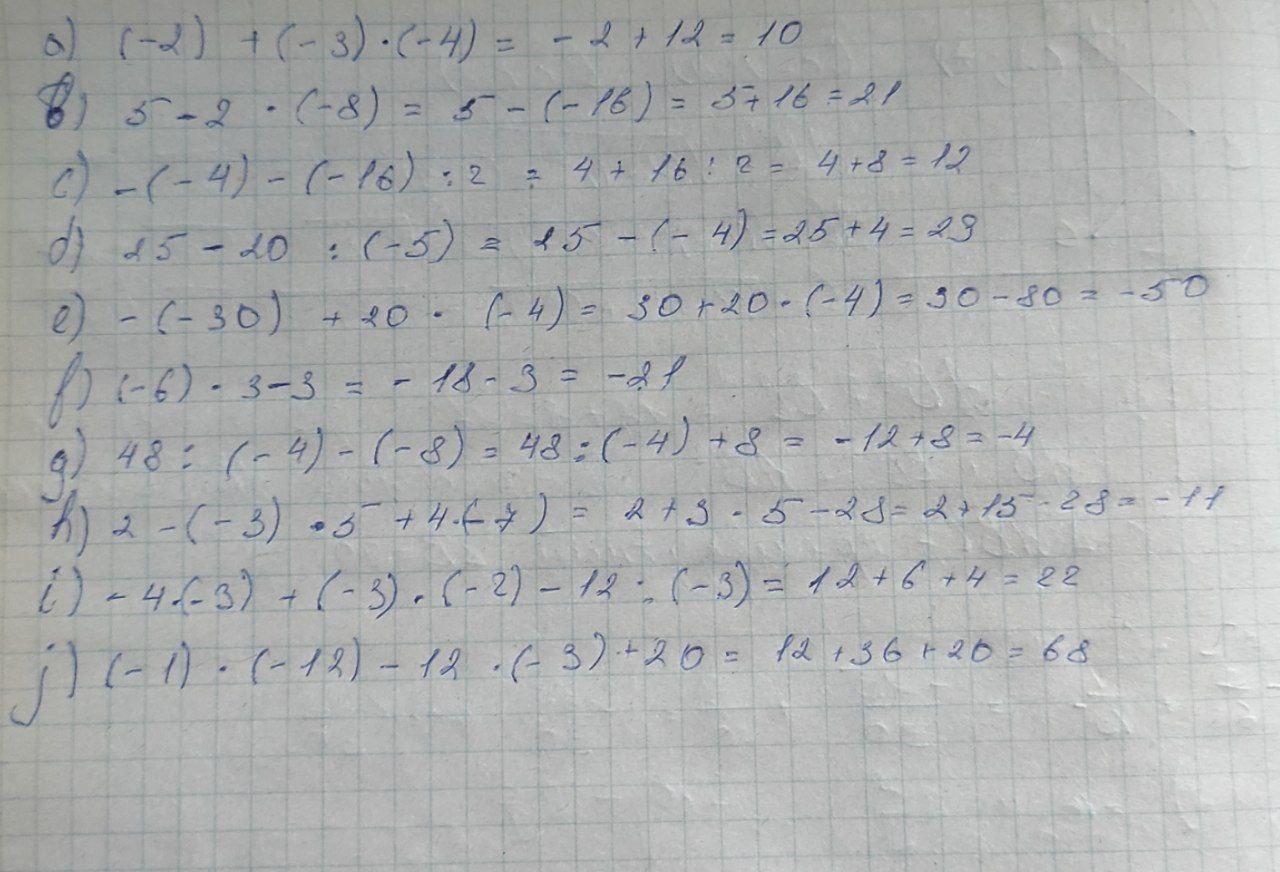 a) (-2) + (-3)·(-4) = -2+12 = 10
b) 5-2 · (-8) = 5-(-16) = 5+16 = 21
c) -(-4)-(-16) :2 = 4+16:2 = 4+8 = 12
d) 25-20 : (-5) = 25-(-4) = 25+4 = 29
e) -(-30) +20 · (-4) = 30+20·(-4) = 30-80 = -50
f) (-6)·3-3 = -18-3 = -21
g) 48: (-4)-(-8) = 48:(-4)+8 = -12+8 = -4
h) 2-(-3) ·5 +4·(-7) = 2+3·5-28 = 2+15-28 = -11
i) -4·(-3) + (-3)·(-2)-12 : (-3) = 12+6+4 = 22
j) (-1)·(-12)-12·(-3)+20 = 12+36+20 = 68